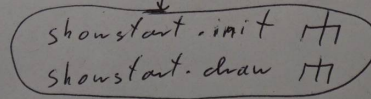 showstart.init
showstart.draw